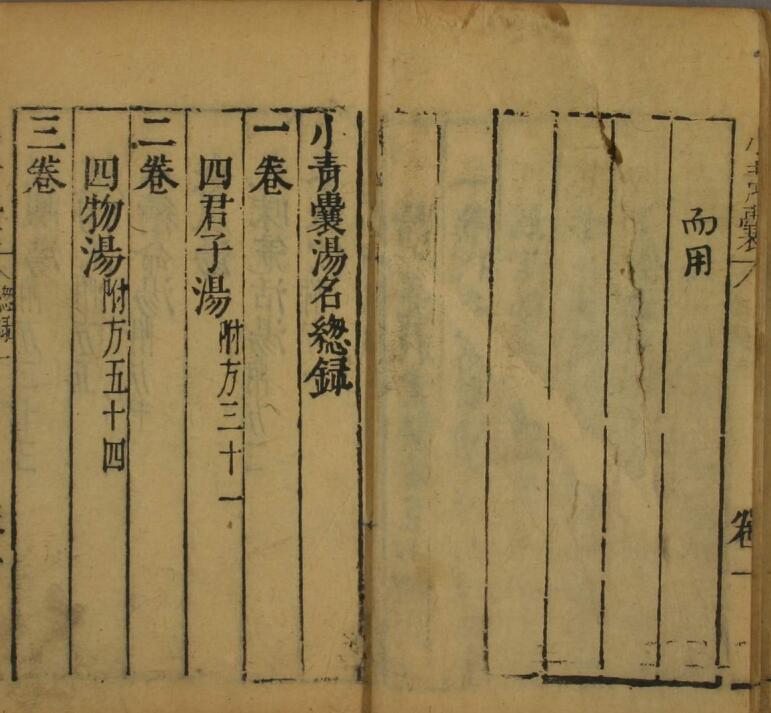 小青囊
卷一
而用
小青囊湯名緫録
一卷
四君子湯附方三十一
二卷
四物湯附方五十四
三卷
緫録一